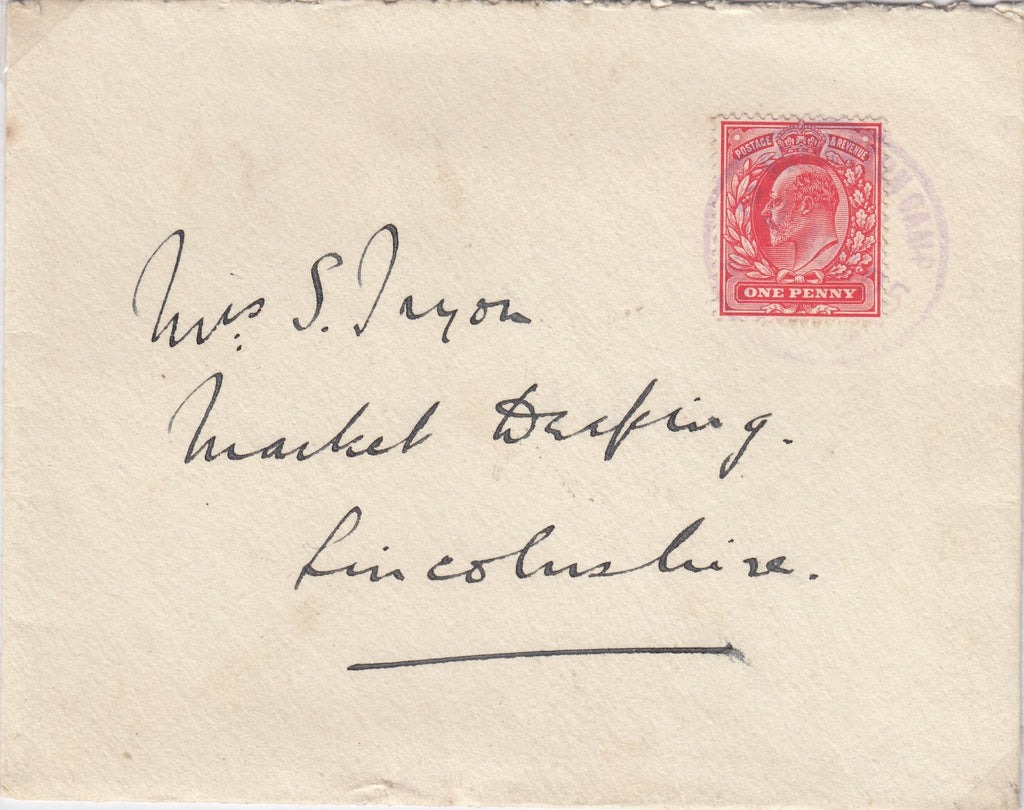 POSTAGE & REVENUE
ONE PENNY
CAMP
Mrs S. Tryon
Market Deeping.
Lincolnshire.